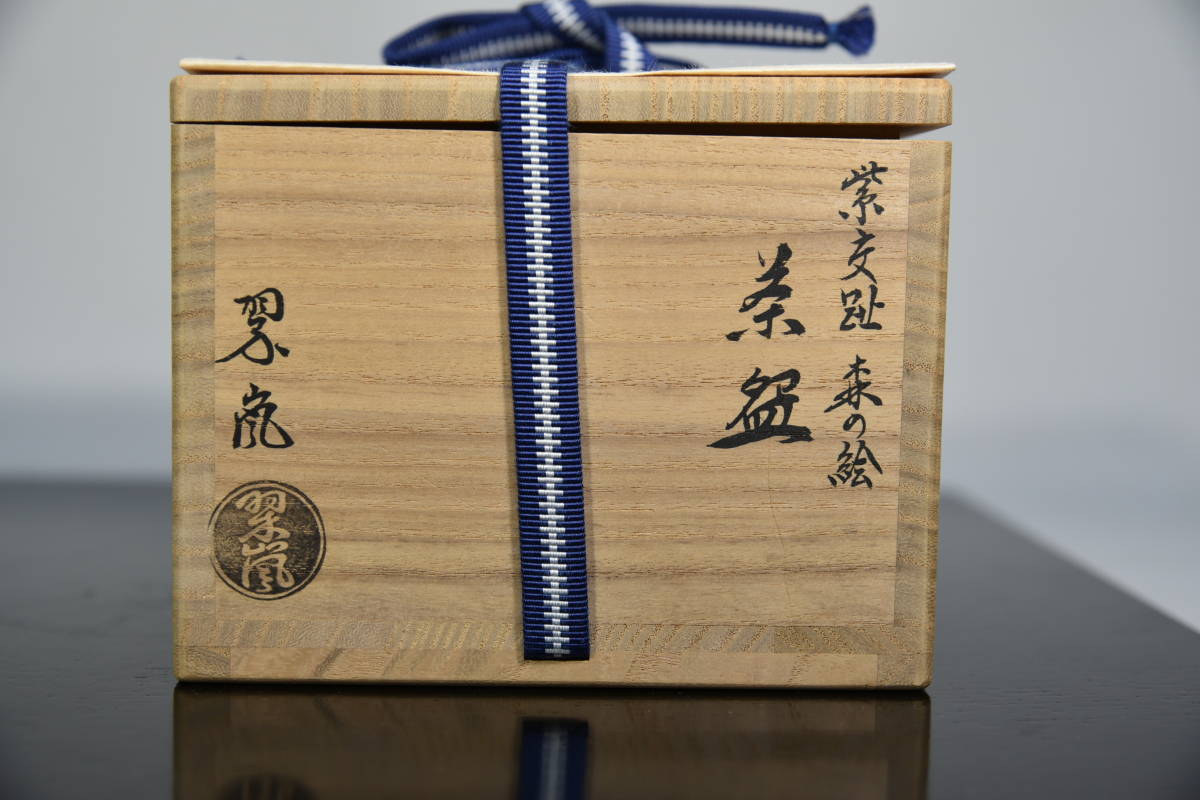 紫交趾 森の絵
茶盌
翠嵐
翠嵐